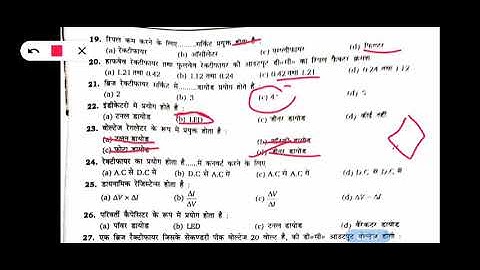 19. रिपल कम करने के लिए.........सर्किट प्रयुक्त होता है :
(a) रेक्टीफायर (b) ऑसीलेटर (c) एम्प्लीफायर (d) फिल्टर
20. हाफवेव रेक्टीफायर तथा फुलवेव रेक्टीफायर की आउटपुट डी०सी० का रिपल फैक्टर क्रमशः
(a) 1.21 तथा 0.42 (b) 1.12 तथा 0.24 (c) 0.42 तथा 1.21 (d) 0.24 तथा 1.12
21. ब्रिज रेक्टीफायर सर्किट में.............डायोड प्रयोग होते हैं :
(a) 2 (b) 3 (c) 4 (d) 5
22. इंडीकेटरों में प्रयोग होते हैं :
(a) टनल डायोड (b) LED (c) जीनर डायोड (d) कोई नहीं
23. वोल्टेज रेगुलेटर के रूप में प्रयुक्त होता है :
(a) टनल डायोड (b) डायोड
(c) फोटो डायोड (d) जीनर डायोड
24. रेक्टीफायर का प्रयोग होता..............में कनवर्ट करने के लिए
(a) A.C से D.C में (b) D.C से A.C में (c) A.C से A.C में (d) D.C से D.C में
25. डायनामिक रेजिस्टेन्स होता है :
(a) ΔV × ΔI (b) ΔI/ΔV (c) ΔV/ΔI (d) ΔV − ΔI
26. परिवर्ती कैपेसिटर के रूप में प्रयोग होता है :
(a) पॉवर डायोड (b) LED (c) टनल डायोड (d) वैरेक्टर डायोड
27. एक ब्रिज रेक्टीफायर जिसके सेकण्डरी पीक वोल्टेज 20 वोल्ट है, की डी०सी० आउटपुट वोल्टेज होगी :